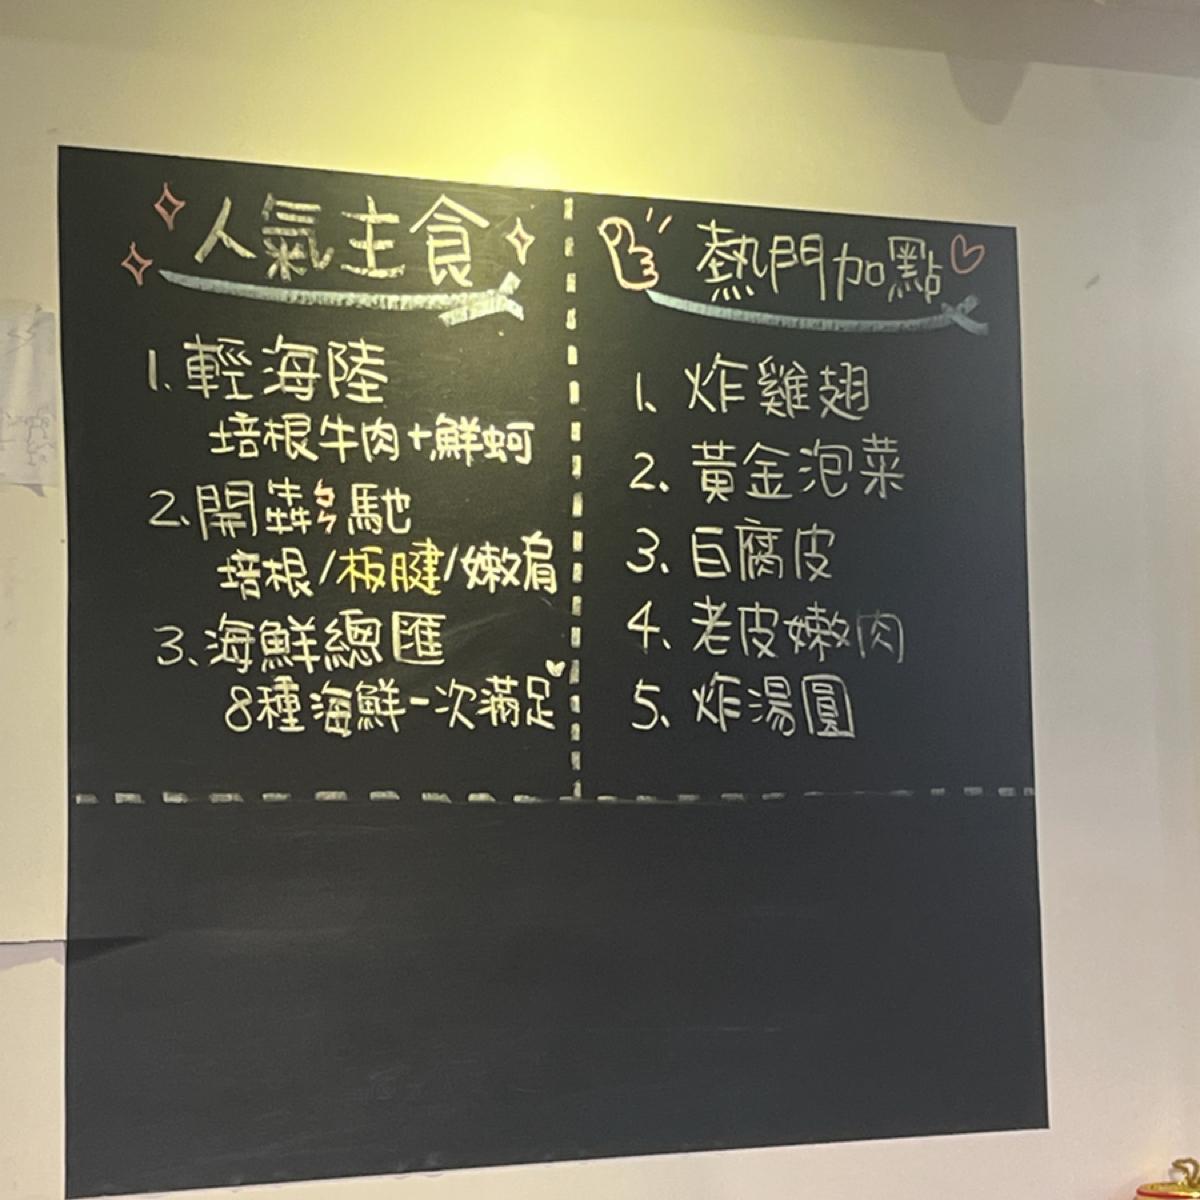 人氣主食
1.輕海陸
培根牛肉+鮮蚵
2.開犇ㄅㄣ馳
培根/板腱/嫩肩
3.海鮮總匯
8種海鮮一次滿足
熱門加點
1、炸雞翅
2、黃金泡菜
3、白腐皮
4、老皮嫩肉
5、炸湯圓